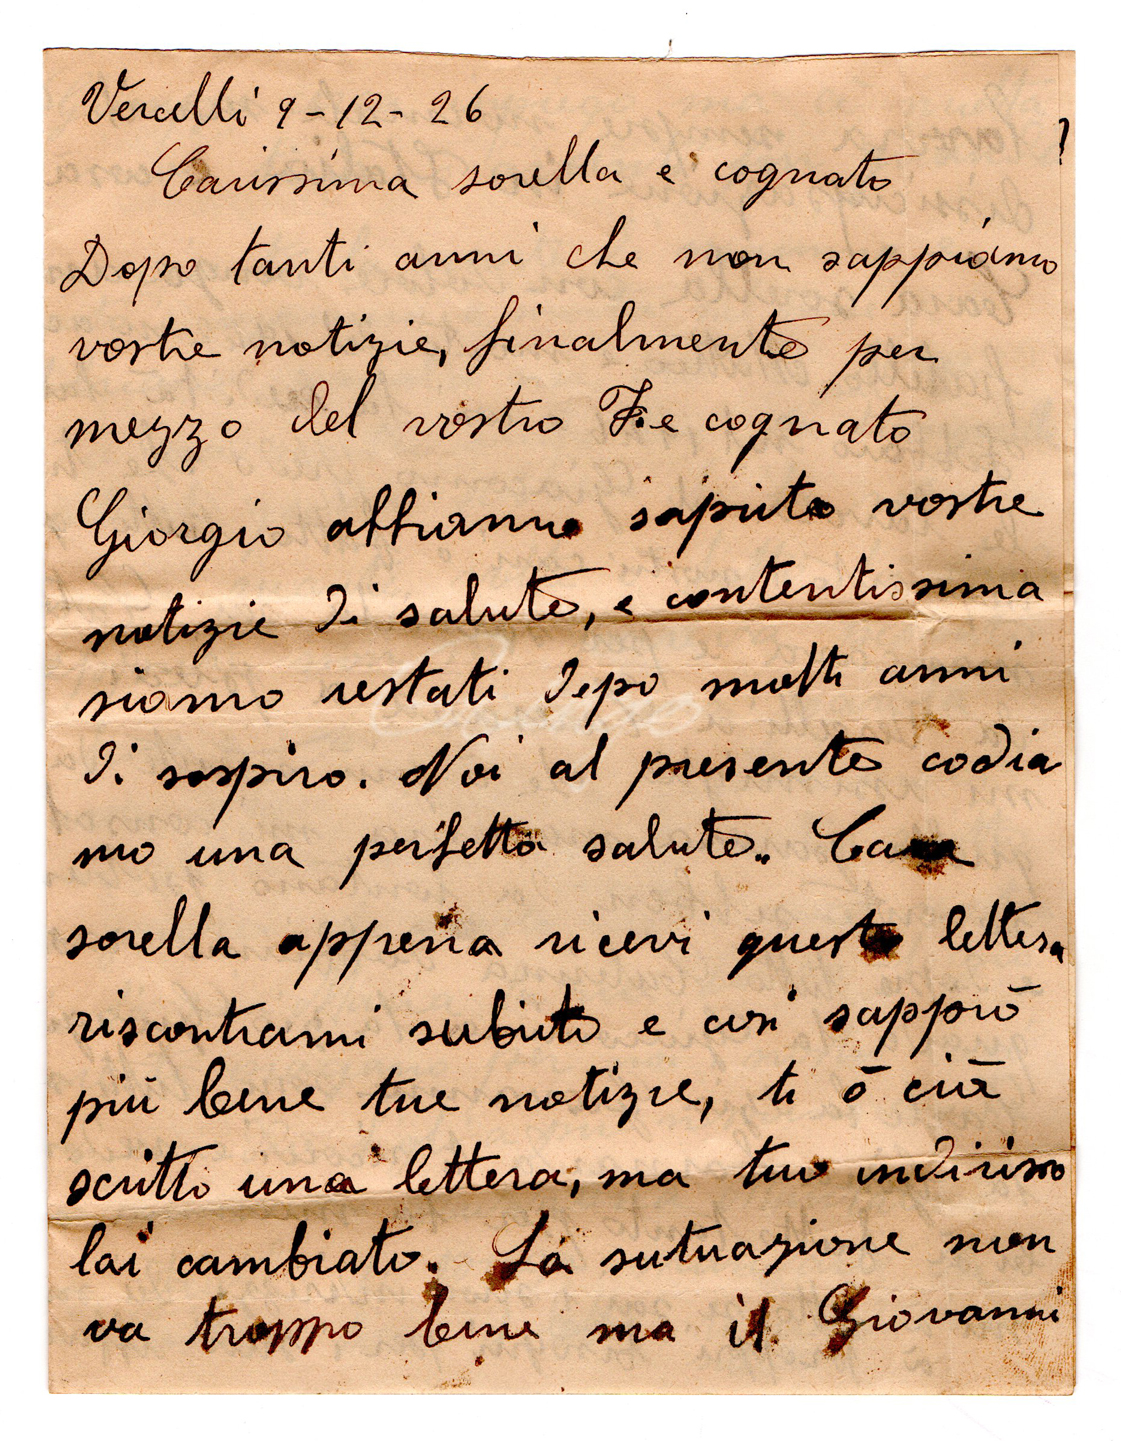 Vercelli 9-12-26
Carissima sorella e cognato
Dopo tanti anni che non sappiamo
vostre notizie, finalmente per
mezzo del vostro F. e cognato
Giorgio abbiamo saputo vostre
notizie di salute, e contentissima
siamo restati depo molti anni
di sospiro. Noi al presente codia
mo una perfetta salute.. Cara
sorella appena ricevi questa lettera
riscontrami subito e cosi sappró
più bene tue notizie, ti ó ciá
scritto una lettera, ma tuo indirisso
lai cambiato. La sutuazione non
va troppo bene ma il Giovanni